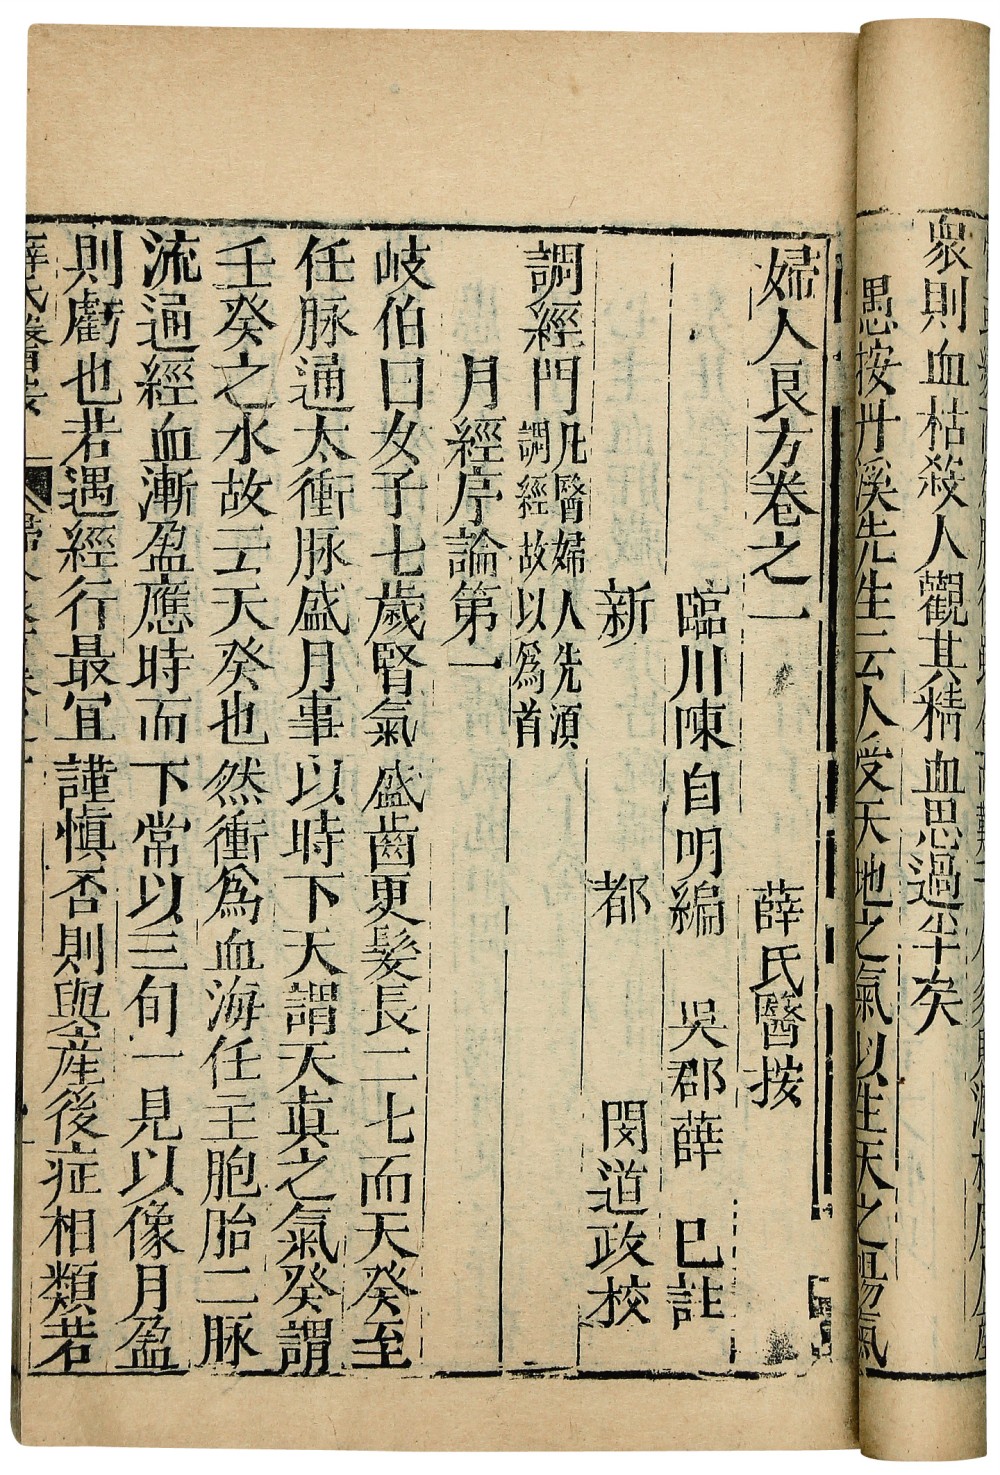 衆則血枯殺人觀其精血思過半矣
愚按丹溪先生云人受天地之氣以生天之陽氣
婦人良方卷之一
薛氏醫按
臨川陳自明編 吳郡薛 已註
新 都 閔道政校
調經門
凡醫婦人先須
調經故以爲首
月經序論第一
岐伯曰女子七歲腎氣盛齒更髮長二七而天癸至
任脉通太衝脉盛月事以時下天謂天真之氣癸謂
壬癸之水故云天癸也然衝爲血海任主胞胎二脉
流通經血漸盈應時而下常以三旬一見以像月盈
則虧也若遇經行最宜謹愼否則與產後症相類若